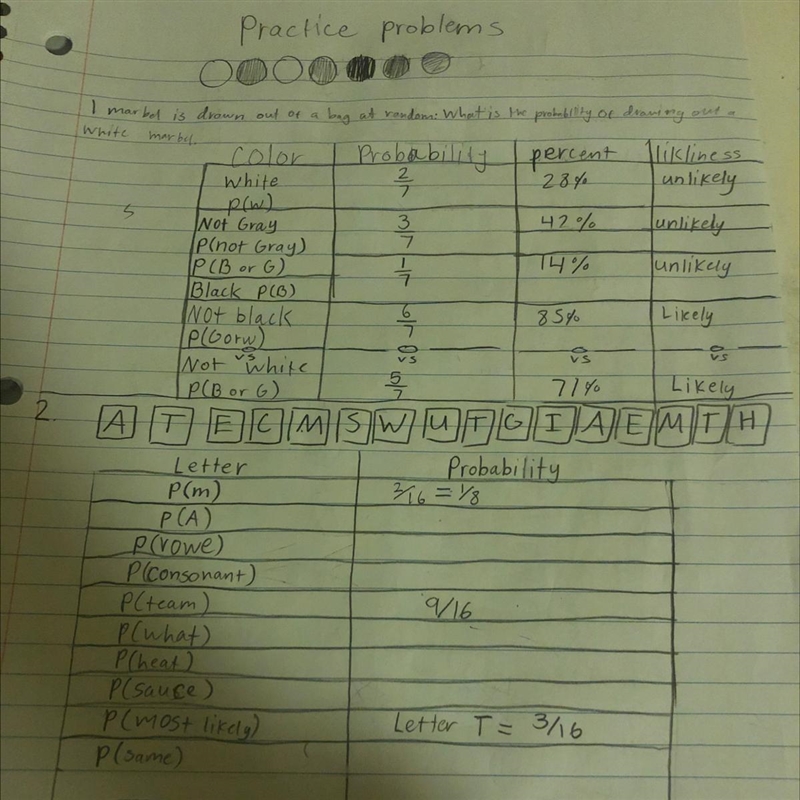 Practice problems
1 marbel is drawn out of a bag at random: What is the probability of drawing out a
white marbel.
Color Probability percent likliness
White 2/7 28% unlikely
P(W)
Not Gray 3/7 42% unlikely
P(not Gray)
P(B or G) 1/7 14% unlikely
Black P(B)
Not black 6/7 85% Likely
P(Gorw)
vs vs vs vs
Not white
P(B or G) 5/7 71% Likely
2. A T E C M S W U T G I A E M T H
Letter Probability
P(m) 2/16 = 1/8
P(A)
P(vowe)
P(consonant)
P(team) 9/16
P(what)
P(heat)
P(sauce)
P(most likely) Letter T = 3/16
P(same)